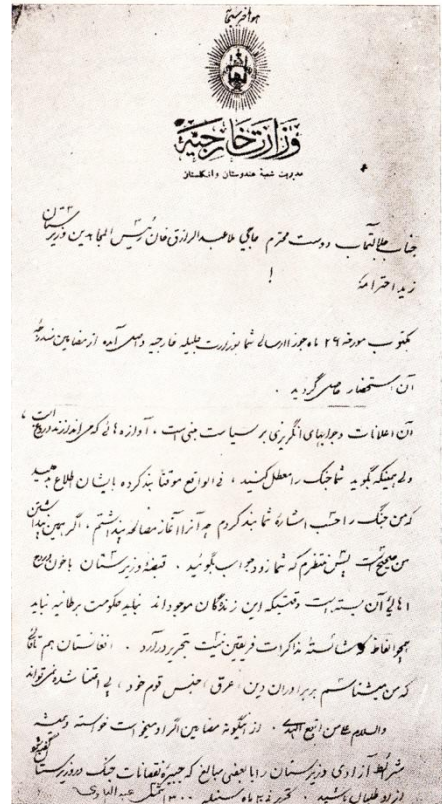 هوالله سبحانه
وزارت خارجیه
مدیریت شعبهٔ هندوستان و انگلستان
جناب جلالتمآب دوست محترم حاجی ملا عبدالرازق خان رئیس المجاهدین وزیرستان
زید احترامهٔ !
مکتوب مورخه ۲۹ ماه جوزا ارسالی شما بوزارت جلیله خارجیه واصل آمده از مضامین مندرجه
آن استحضار حاصل گردید .
آن اعلانات و جوابهای انگریزی بر سیاست مبنی است ، آوازه هائی که می اندازند دروغ است ،
ولی همینکه بگوید شما جنگ را معطل کنید ، فی الواقع موقتاً بند کرده بایشان اطلاع بدهید
که من جنگ را حسب اشارهٔ شما بند کردم چه آنرا آغاز مصالحه پنداشتم ، اگر همین پنداشتن
من صحیح است پس منتظرم که شما زود جواب بگوئید . قبضهٔ وزیرستان باخون
اهالی آن بسته است وقتیکه این زندگان موجود اند نباید حکومت برطانیه
الفاظ که شائستهٔ مذاکرات فریقین نیست بتحریر درآورد . افغانستان هم تا
که من میشناسم بر برادران دین عرق و جنس قوم خود ، بی اعتنا شده نمی تواند
والسلام علی من اتبع الهدی . ازینگونه مضامین اگر او میخواست خواسته
شرائط آزادی وزیرستان را با بعضی مبالغ که جبیرهٔ نقصانات جنگ در وزیرستان
ازاو طلبان باشید . تحریر ماه سنبله ۱۳۰۰